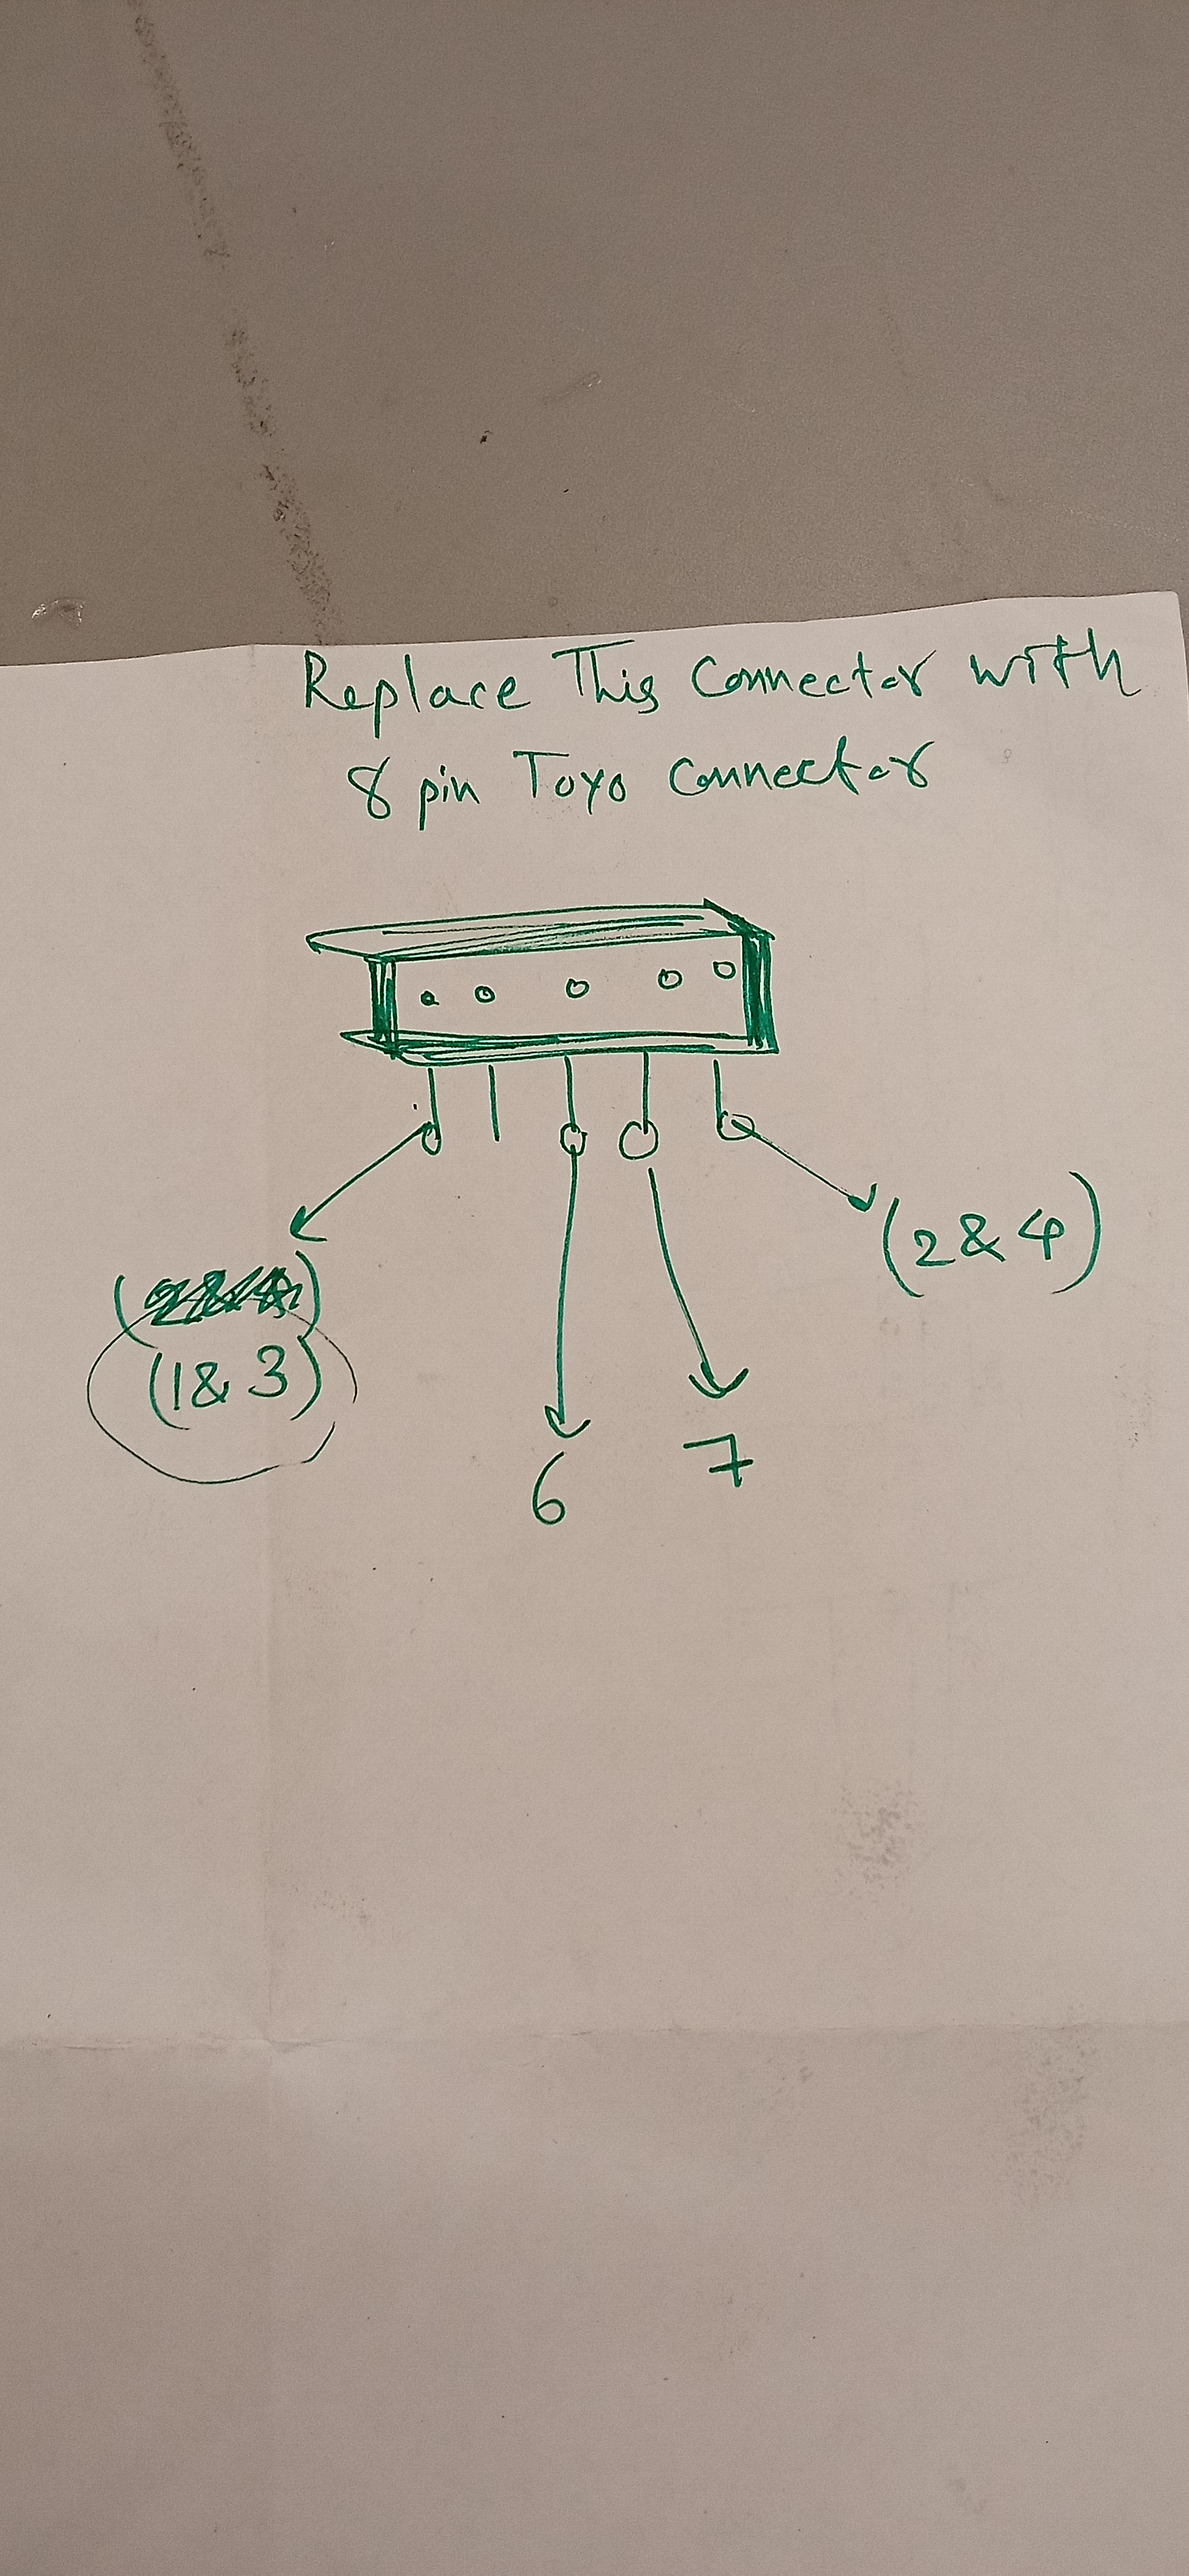 Replace This Connector with
8 pin Toyo Connector
(2 & 4)
(1 & 3)
6
7